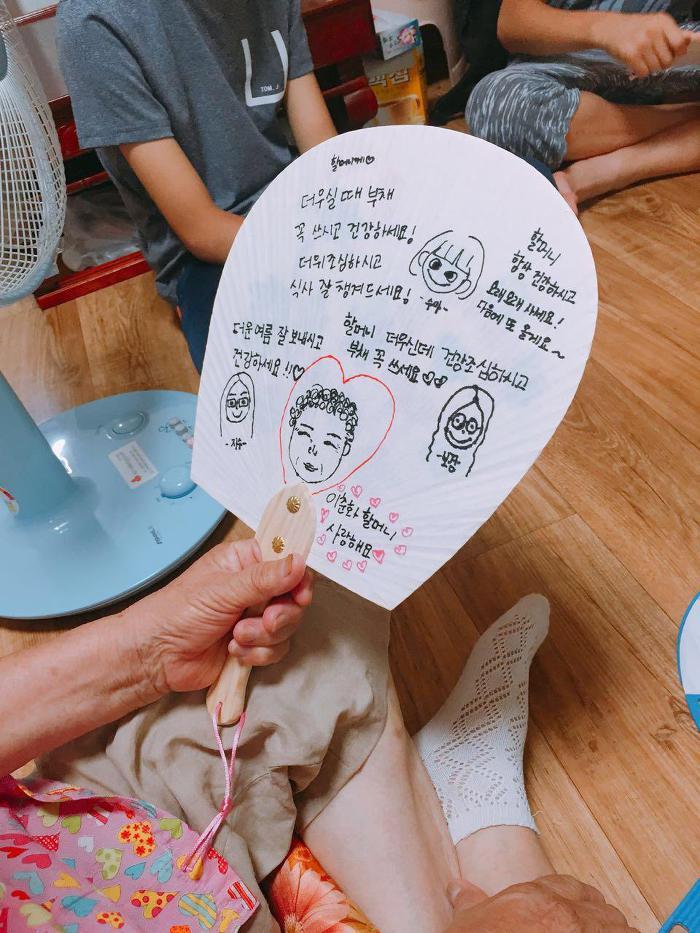 할머니께♡
더우실 때 부채
꼭 쓰시고 건강하세요!
더위조심하시고
식사 잘 챙겨드세요!
-수아-
할머니
항상 건강하시고
오래오래 사세요!
다음에 또 올게요~
더운여름 잘 보내시고
건강하세요!!♡
-지윤-
할머니 더우신데 건강조심하시고
부채 꼭 쓰세요♡♡
이춘화 할머니
사랑해요
TOM.J